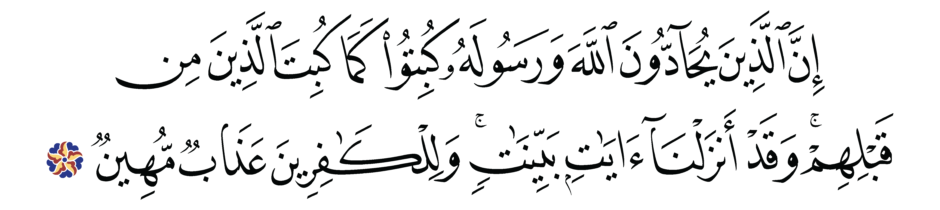 إِنَّ ٱلَّذِينَ يُحَآدُّونَ ٱللَّهَ وَرَسُولَهُۥ كُبِتُوا۟ كَمَا كُبِتَ ٱلَّذِينَ مِن
قَبْلِهِمْ ۚ وَقَدْ أَنزَلْنَآ ءَايَٰتٍۭ بَيِّنَٰتٍ ۚ وَلِلْكَٰفِرِينَ عَذَابٌ مُّهِينٌ